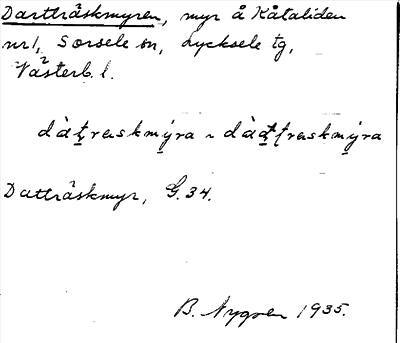 Dartträskmyren, myr å Kåtaliden
nr 1, Sorsele sn, Lycksele tg,
Västerb. l.
dàt̲raskmy̲ra ~ dàa̲t̲traskmy̲ra
Datträskmyr, G. 34.
B. Nygren 1935.